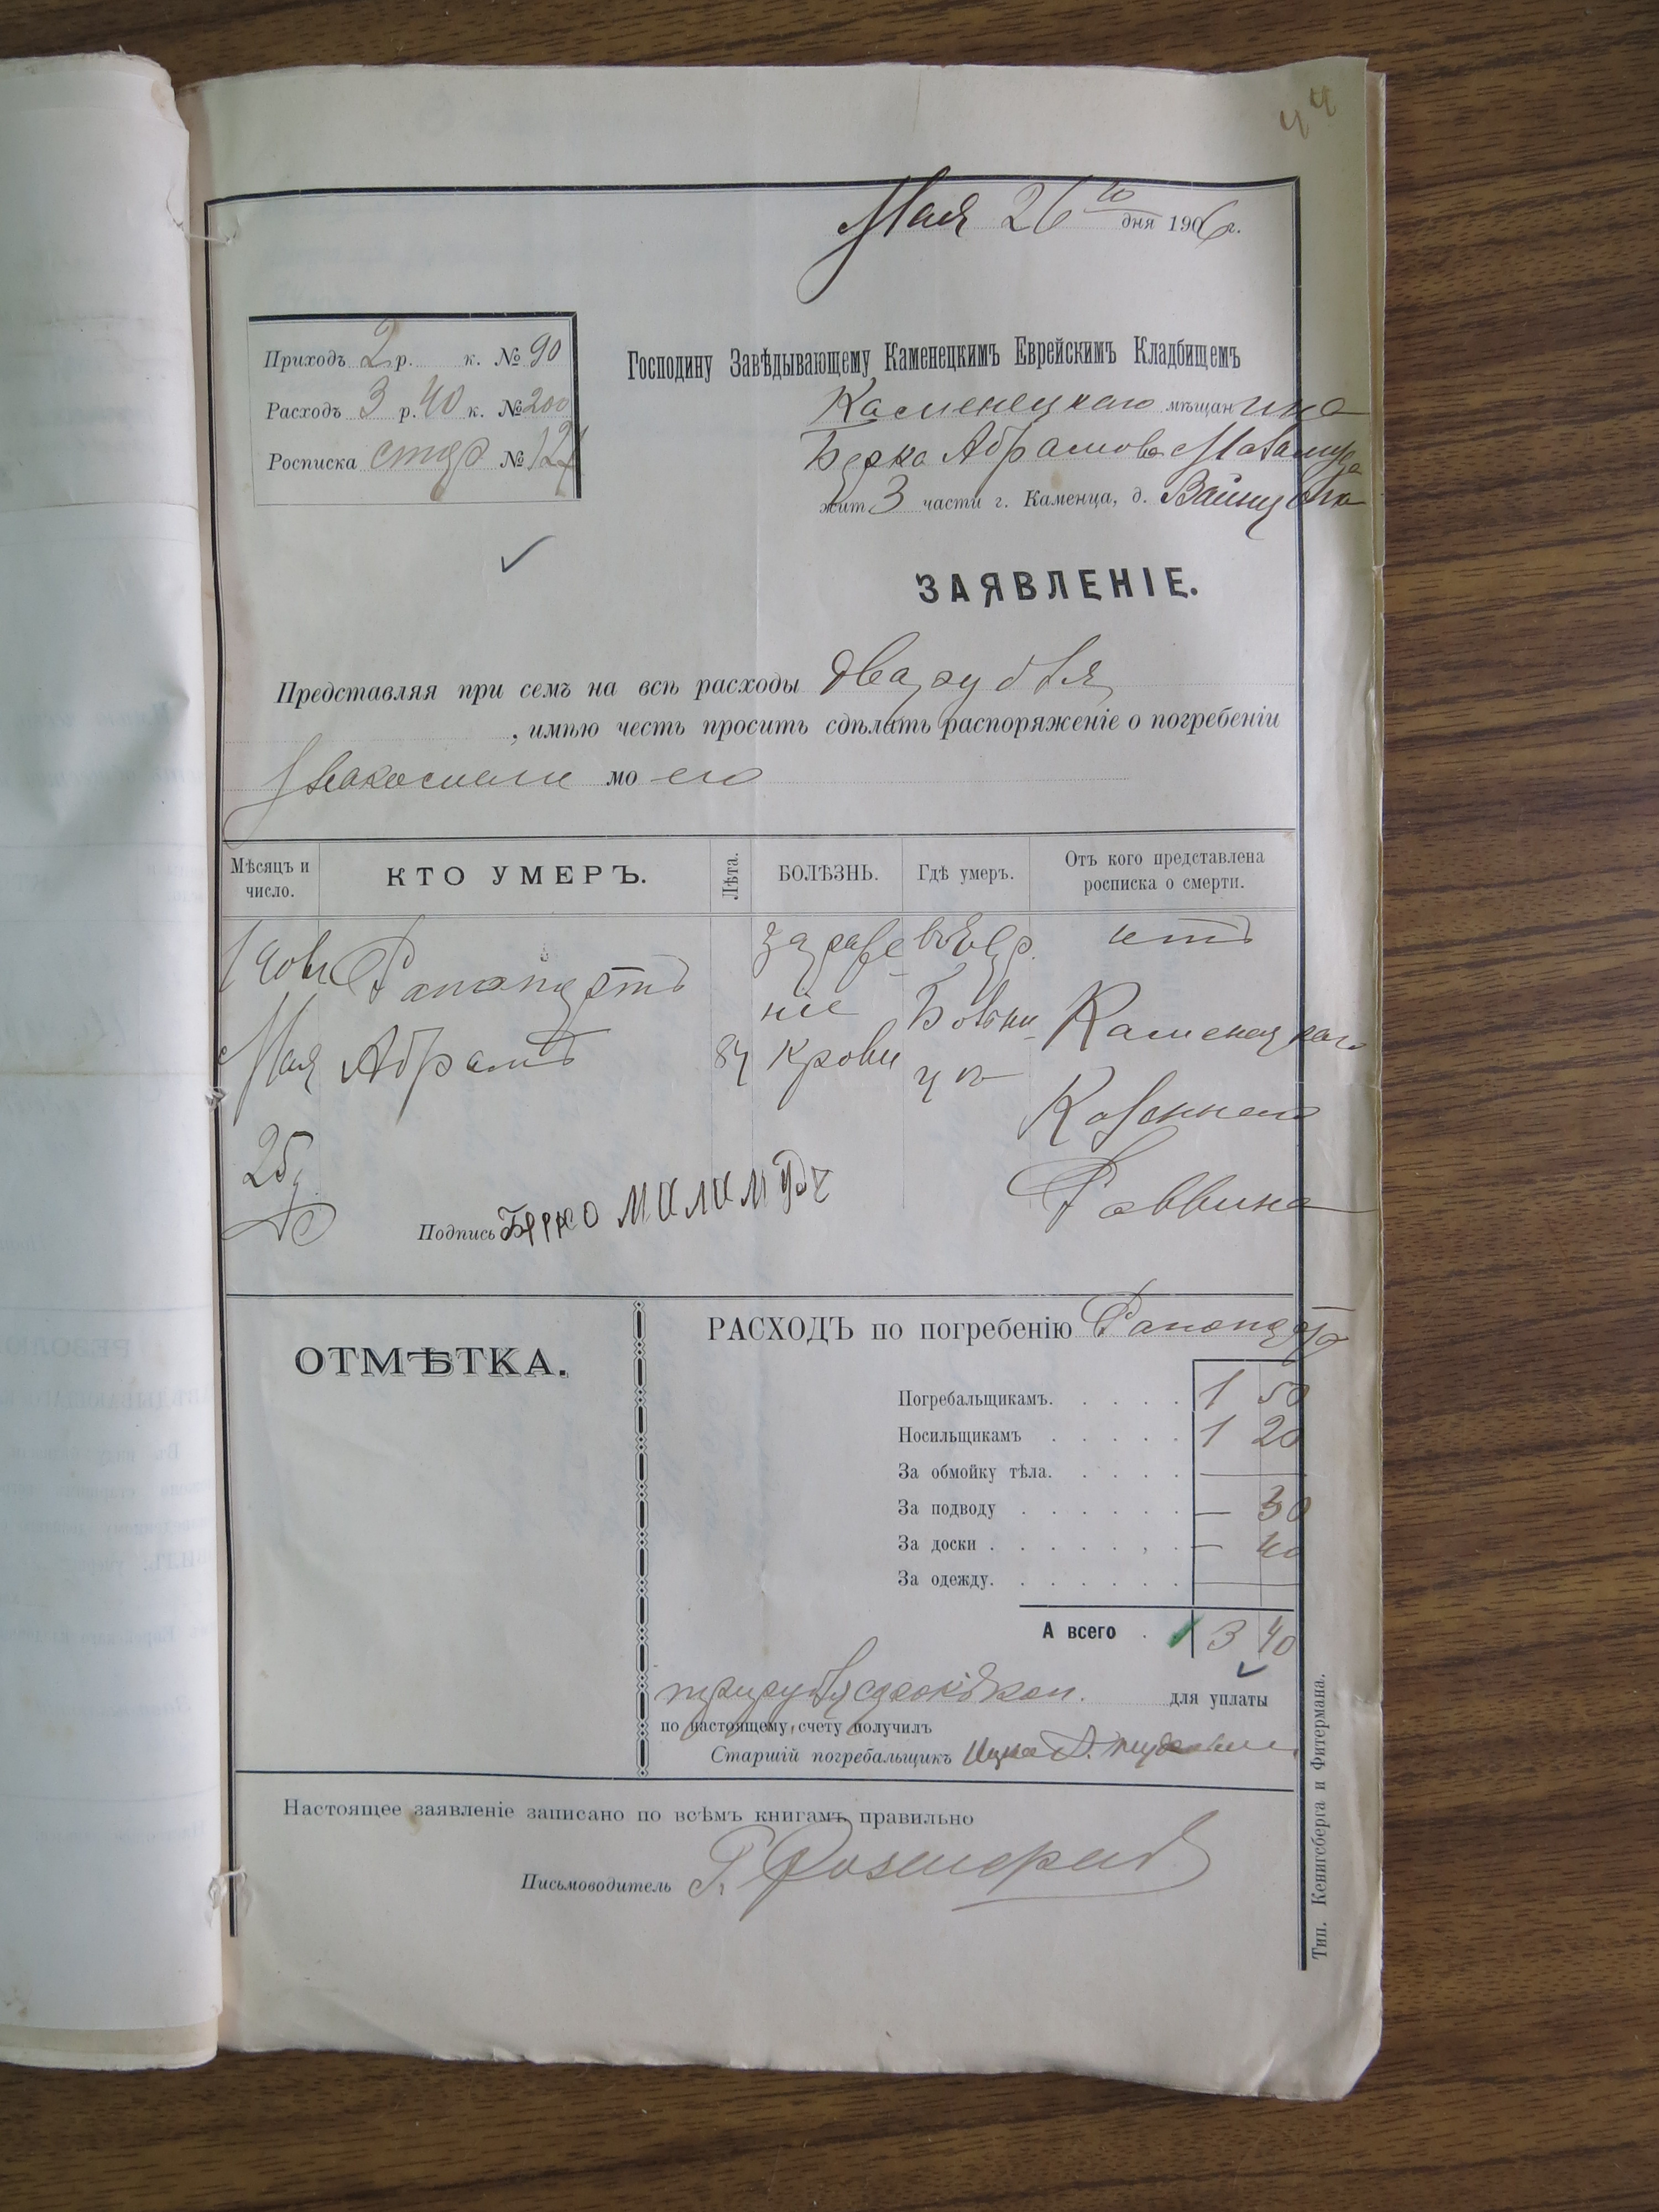 44
Мая 26го дня 1906 г.
Приходъ 2 р. к. № 90
Расходъ 3 р. 40 к. № 200
Росписка № 127
Господину Завѣдывающему Каменецкимъ Еврейскимъ Кладбищемъ
Каменецкаго мѣщанина
Берка Абрамова
жит 3 части г. Каменца, д.
ЗАЯВЛЕНІЕ.
Представляя при семъ на всѣ расходы два рубля
, имѣю честь просить сдѣлать распоряженіе о погребеніи
знакомаго моего
Мѣсяцъ и число.
КТО УМЕРЪ.
Лѣта.
БОЛѢЗНЬ.
Гдѣ умеръ.
Отъ кого представлена росписка о смерти.
Рапопортъ
Абрамъ
Мая
25
84
зараже
ніе
крови
въ Евр.
Больни
цѣ
отъ
Каменецкаго
Казеннаго
Раввина
Подпись Берко
ОТМѢТКА.
РАСХОДЪ по погребенію Рапопорта
Погребальщикамъ. 1 50
Носильщикамъ 1 20
За обмойку тѣла. —
За подводу — 30
За доски — 40
За одежду. —
А всего 3 40
три рубля сорокъ коп. для уплаты
по настоящему счету получилъ
Старшій погребальщикъ Ицко
Настоящее заявленіе записано по всѣмъ книгамъ правильно
Письмоводитель
Тип. Кенигсберга и Фитермана.